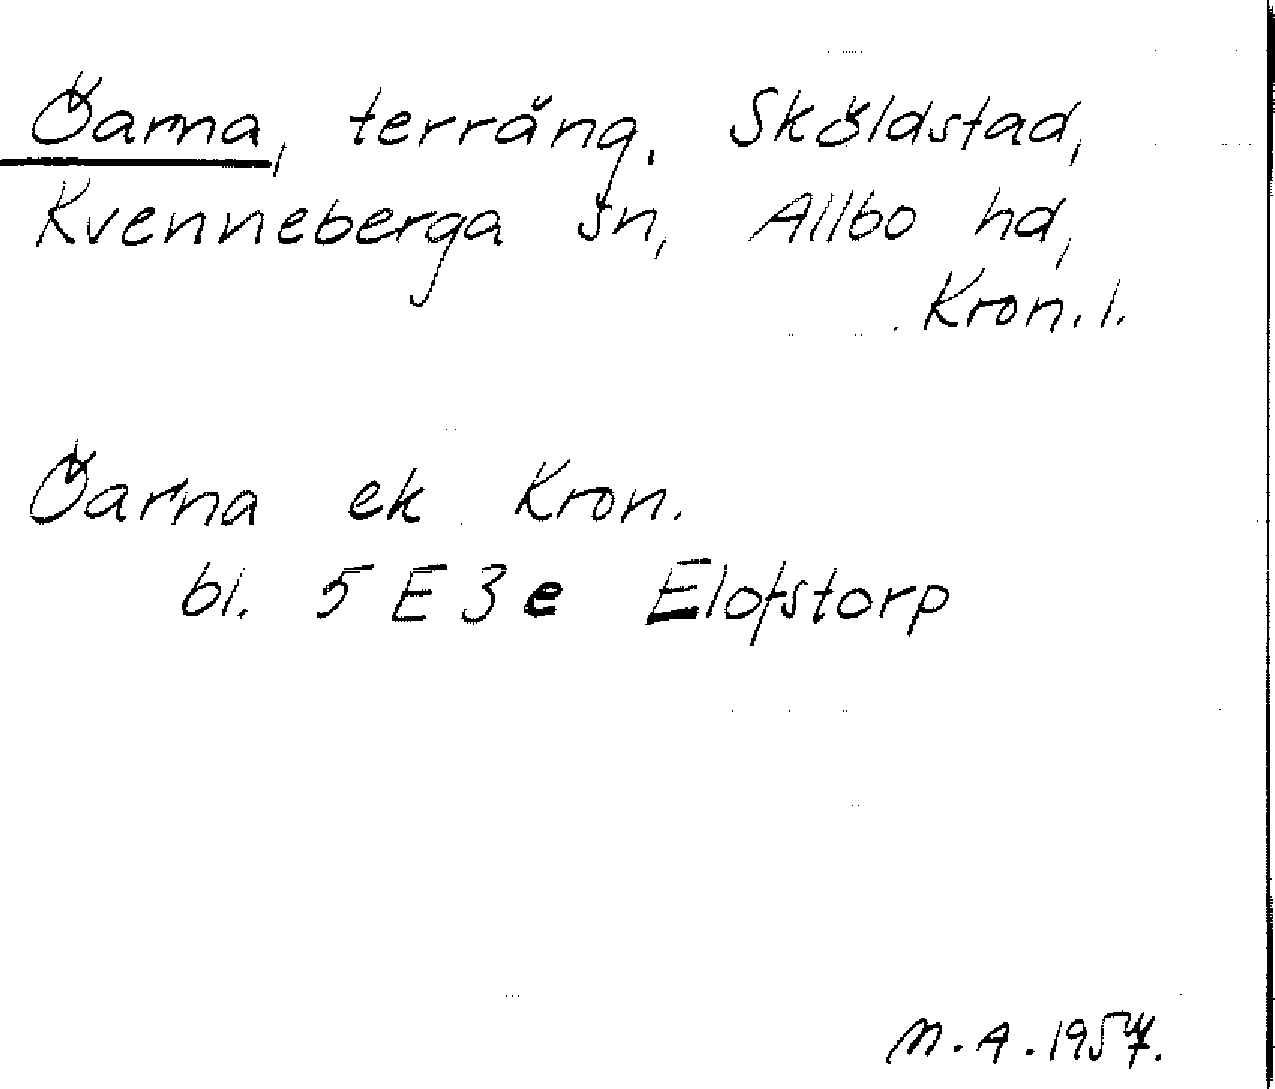 Öarna, terräng, Sköldstad,
Kvenneberga sn, Allbo hd,
Kron. l.
Öarna ek Kron.
bl. 5 E 3 e Elofstorp
N.A. 1957.